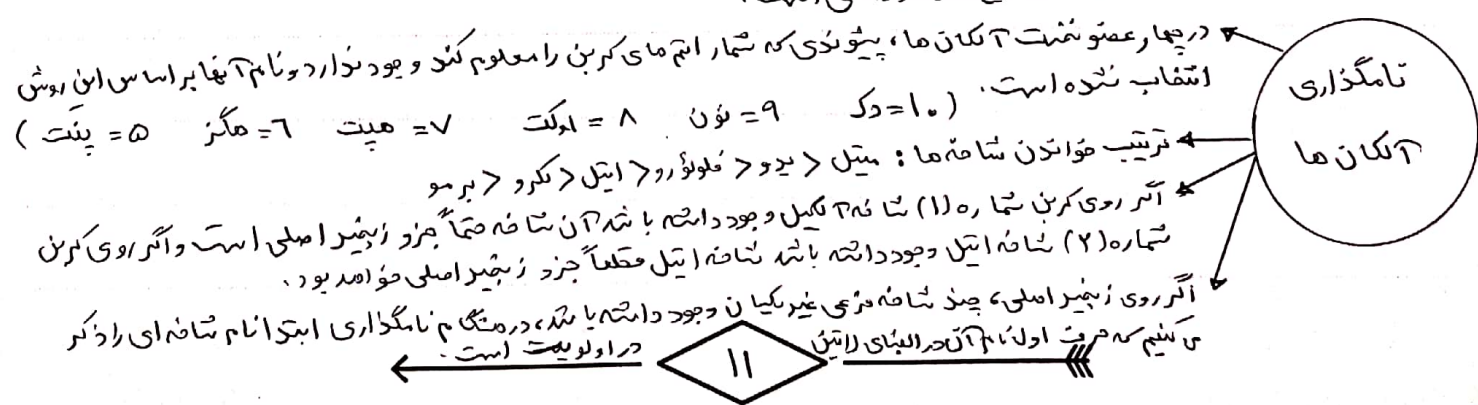 نامگذاری
آلکان ها
در چهار عضو نخست آلکان ها، پیشوندی که شمار اتم های کربن را معلوم کند وجود ندارد و نام آنها بر اساس این روش
انتخاب نشده است. (۱۰=دک ۹=نون ۸=اوکت ۷=هپت ۶=هگز ۵=پنت)
ترتیب خواندن شاخه ها: متیل < یدو < فلوئورو < اتیل < کلرو < برمو
اگر روی کربن شماره (۱) شاخه آلکیل وجود داشته باشد آن شاخه حتماً جزو زنجیر اصلی است و اگر روی کربن
شماره (۲) شاخه اتیل وجود داشته باشد شاخه اتیل قطعاً جزو زنجیر اصلی خواهد بود.
اگر روی زنجیر اصلی، چند شاخه فرعی غیر یکسان وجود داشته باشد، در هنگام نامگذاری ابتدا نام شاخه ای را ذکر
می کنیم که حرف اول نام آن در الفبای لاتین در اولویت است.
۱۱